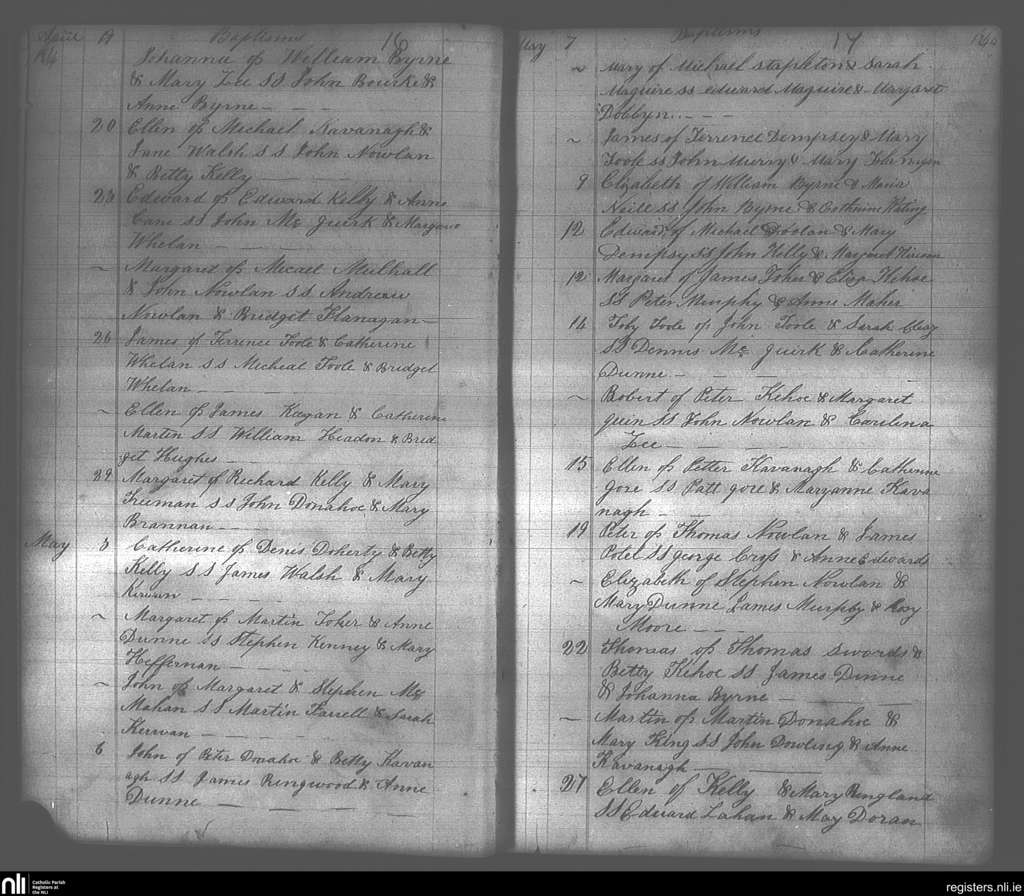 April 17 Baptisms 16
Johanna of William Byrne
& Mary Lee SS John Bourke &
Anne Byrne
20 Ellen of Michael Kavanagh &
Jane Walsh SS John Nowlan
& Betty Kelly
23 Edward of Edward Kelly & Anne
Cane SS John Mc Quirk & Margaret
Whelan
~ Margaret of Micael Mulhall
& John Nowlan SS Andreau
Nowlan & Bridget Flanagan
26 James of Terrence Toole & Catherine
Whelan SS Micheal Toole & Bridget
Whelan
~ Ellen of James Keegan & Catherine
Martin SS William Headon & Brid
get Hughes
29 Margaret of Richard Kelly & Mary
Freeman SS John Donahoe & Mary
Brannan
May 3 Catherine of Denis Doherty & Betty
Kelly SS James Walsh & Mary
Kirwan
~ Margaret of Martin Toker & Anne
Dunne SS Stephen Kenney & Mary
Heffernan
~ John of Margaret & Stephen Mc
Mahan SS Martin Farrell & Sarah
Kerwan
6 John of Peter Donahoe & Betty Kavan
agh SS James Ringwood & Anne
Dunne
May 7 Baptisms 17
~ Mary of Michael Stapleton & Sarah
Maguire SS Edward Maguire & Margaret
Dobbyn
~ James of Terrence Dempsey & Mary
Toole SS John Murry & Mary
9 Elizabeth of William Byrne & Maria
Neill SS John Byrne & Catherine Kating
12 Edward of Michael Doolan & Mary
Dempsy SS John Kelly & Margaret
12 Margaret of James Toker & Eliza Kehoe
SS Peter Murphy & Anne Maher
14 Toby Toole of John Toole & Sarah
SS Dennis Mc Quirk & Catherine
Dunne
~ Robert of Peter Kehoe & Margaret
Quin SS John Nowlan & Carolina
Lee
15 Ellen of Petter Kavanagh & Catherine
Gore SS Patt Gore & Maryanne Kava
nagh
19 Peter of Thomas Nowlan & James
Potel SS George Cross & Anne Edwards
~ Elizabeth of Stephen Nowlan &
Mary Dunne James Murphy & Rosy
Moore
22 Thomas of Thomas Swords &
Betty Kehoe SS James Dunne
& Johanna Byrne
~ Martin of Martin Donahoe &
Mary King SS John Dowling & Anne
Kavanagh
27 Ellen of Kelly & Mary Ringland
SS Edward Lahan & May Doran
nli
Catholic Parish
Registers at
the NLI
registers.nli.ie